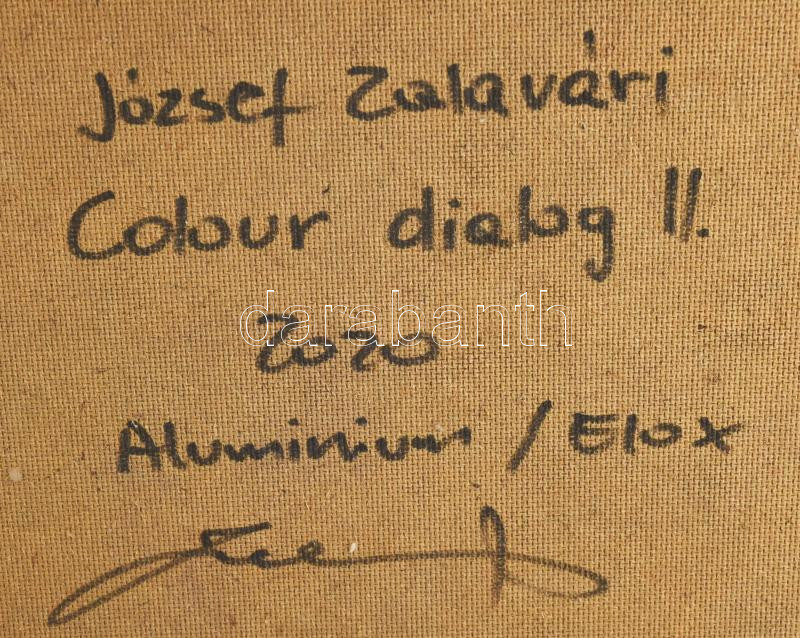 József Zalavári
Colour dialog II.
darabanth
2020
Aluminium / Elox